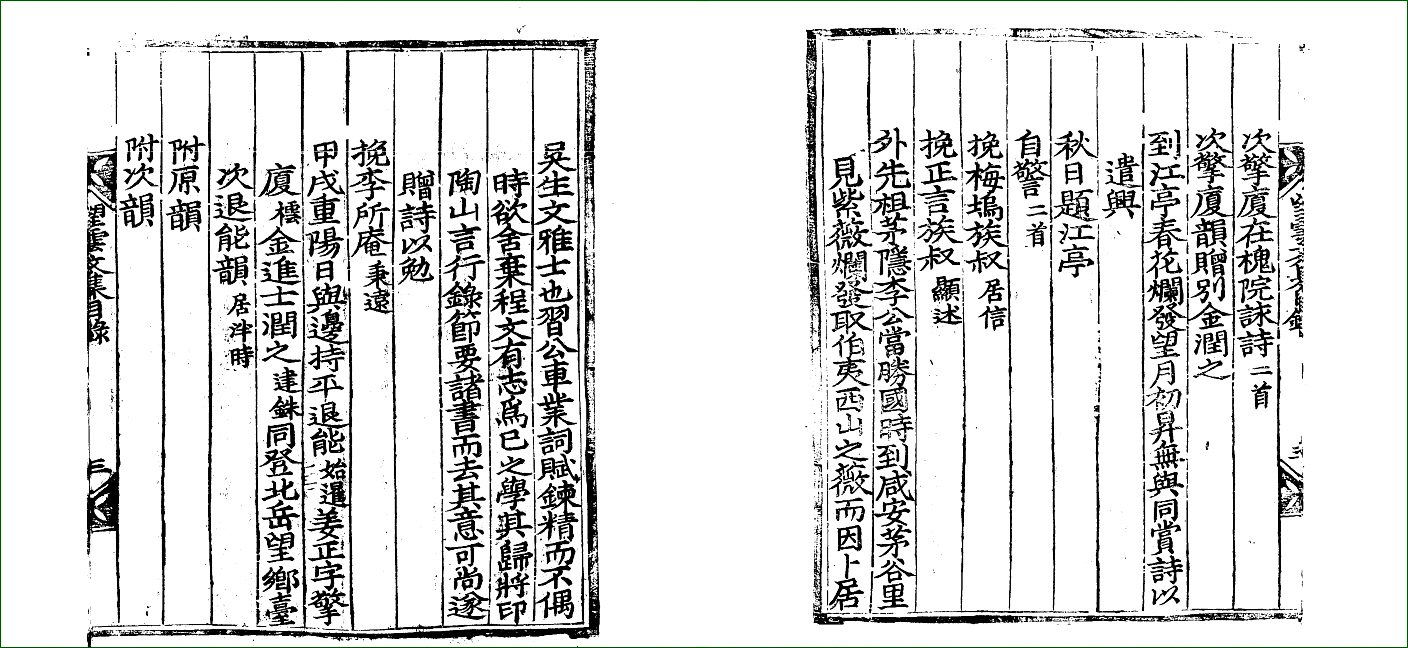 次擎廈在槐院誄詩 二首
次擎廈韻贈別金潤之
到江亭春花爛發望月初昇無與同賞詩以
遣興
秋日題江亭
自警 二首
挽梅塢族叔 居信
挽正言族叔 顯述
外先祖茅隱李公當勝國時到咸安茅谷里
見紫薇爛發取伯夷西山之薇而因卜居
吳生文雅士也習公車業詞賦鍊精而不偶
時欲舍棄程文有志爲己之學其歸將印
陶山言行錄節要諸書而去其意可尚遂
贈詩以勉
挽李所庵 秉遠
甲戌重陽日與邊持平退能 始暹 姜正字擎
廈 橒 金進士潤之 建銖 同登北岳望鄉臺
次退能韻 居泮時
附原韻
附次韻
望雲文集目錄 三